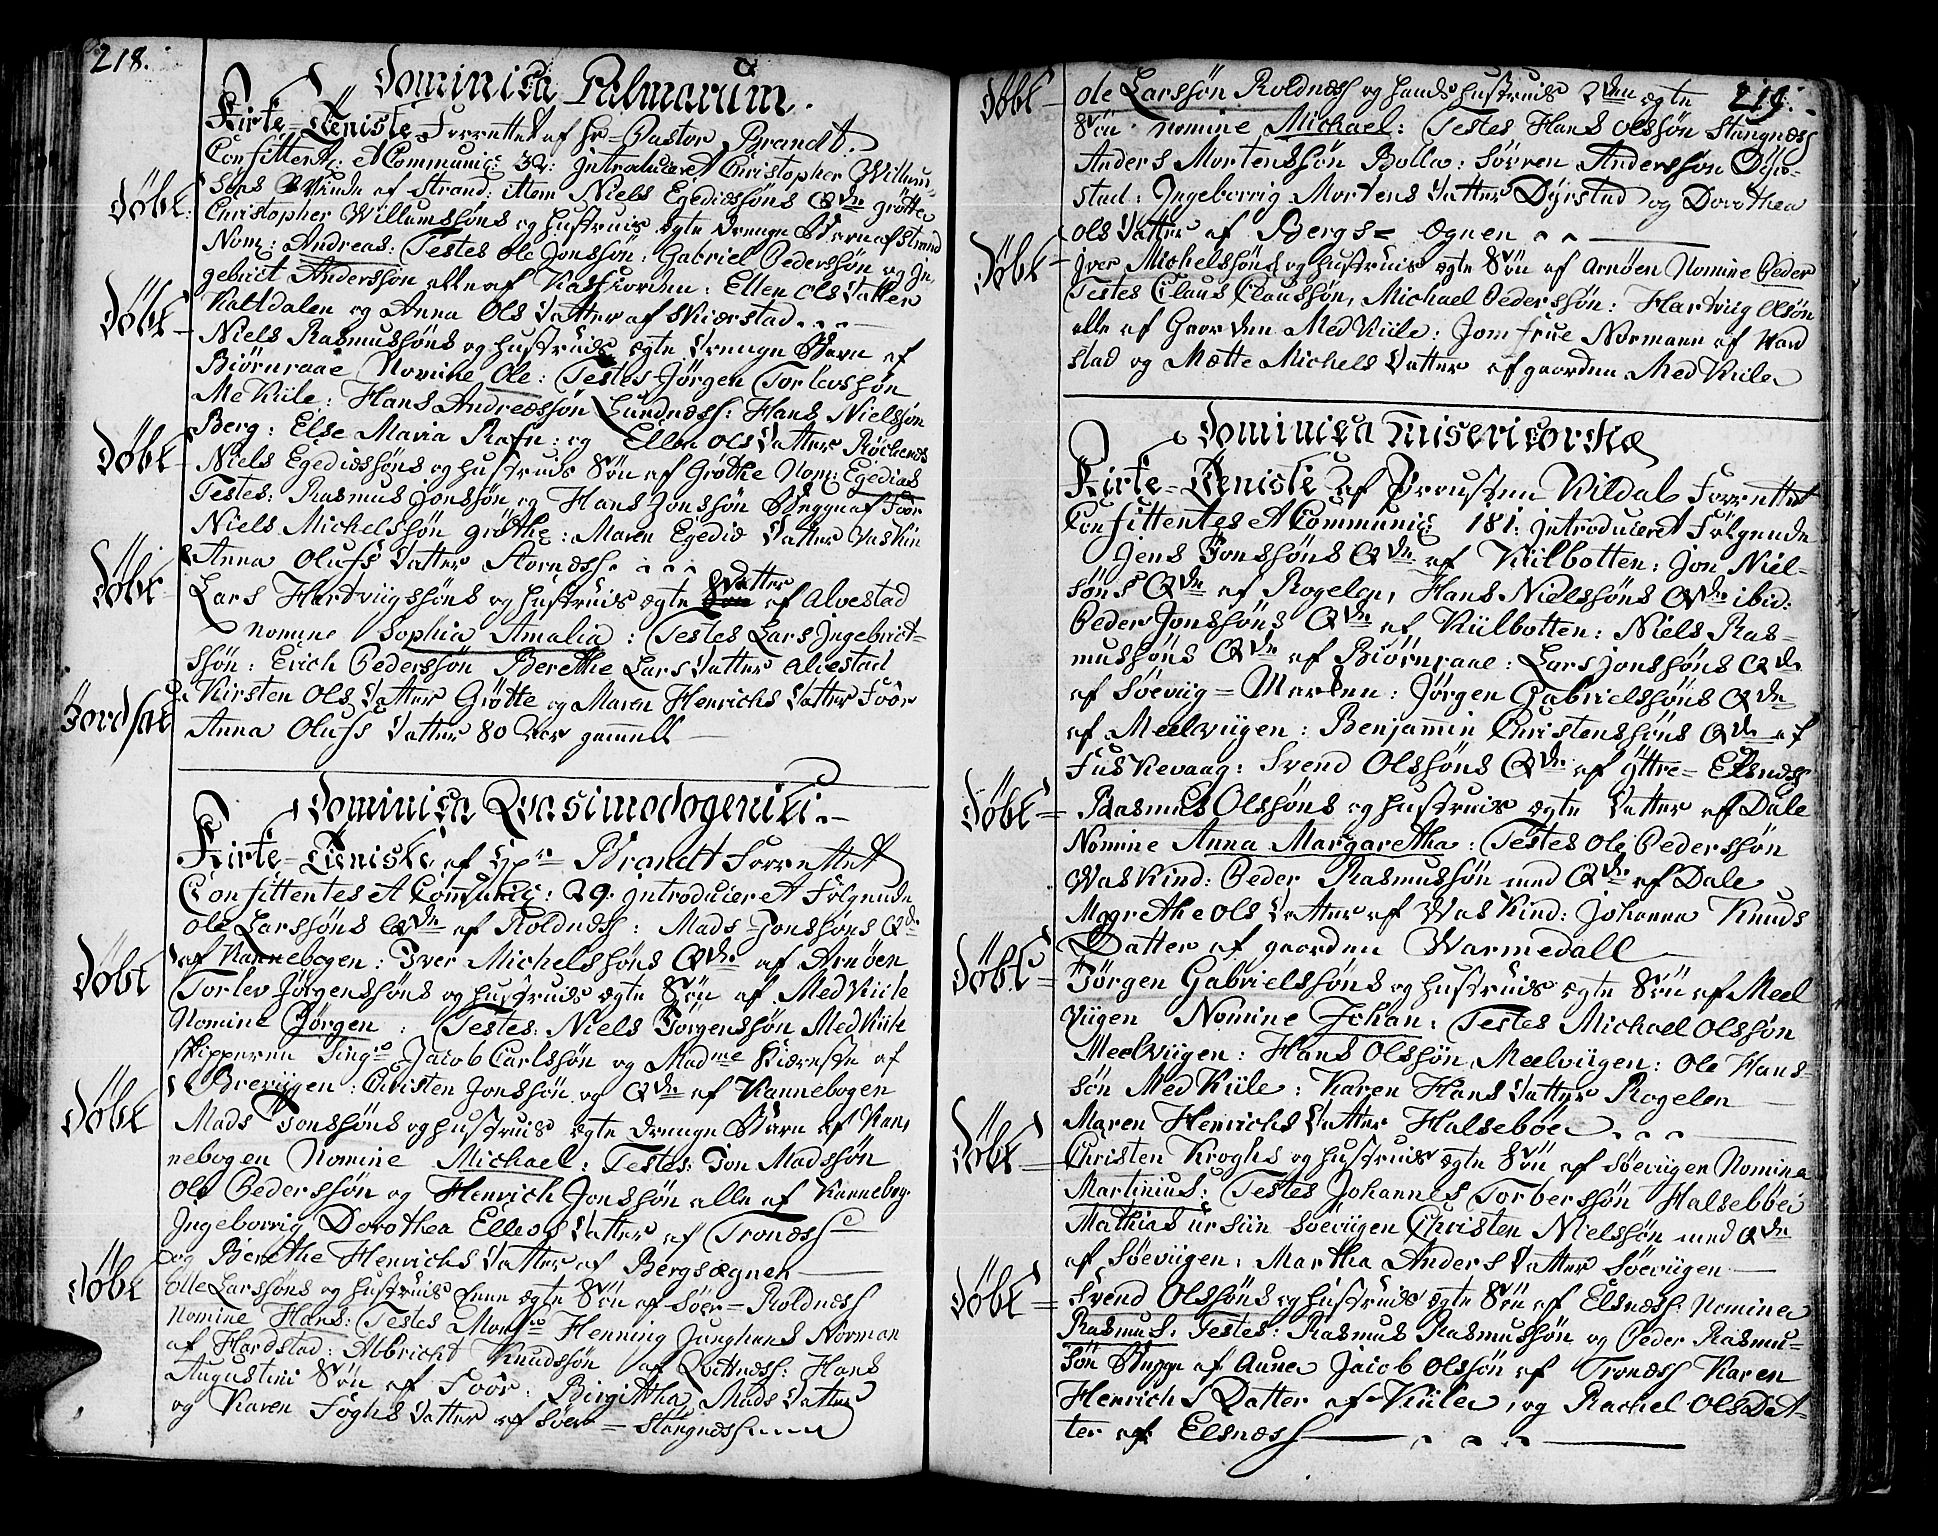 218.
Dominica Palmarum.
Kirke-Tieniste Forrettet af Hr Pastor Brandt.
Confittentz: et Communic: 32: Introduceret Christopher Willum-
søns Qvinde af Strand: item Niels Egediæssøns Qvde Grøtte
Døbt: Christopher Willumssøns og Hustrues ægte Drenge Barn af Strand
Nom: Andreas: Testes Ole Jonssøn: Gabriel Pederssøn og In-
gebrict Anderssøn alle af Kassfiorden: Ellen Ols Datter
Kaltdalen og Anna Ols Datter af Skierstad
Døbt - Niels Rasmussøns og Hustrues ægte Drenge Barn af
Biørnraae Nomine Ole: Testes Jørgen Torlevssøn
MeKiile: Hans Andreæssøn Lundness: Hans Nielssøn
Berg: Else Maria Rafn: og Ellen Ols Datter
Døbt - Niels Egediæssøns og Hustrues Søn af Grøthe Nom: Egedias
Testes: Rasmus Jonssøn og Hans Jonssøn Begge af Foor
Niels Michelssøn Grøthe: Maren Egedid Datter Vaskin
Anna Olufs Datter Stornæss.
Døbt - Lars Hartviigssøns og Hustrues ægte Søn Datter af Alvestad
Nomine Sophia Amalia: Testes Lars Ingebrict-
ssøn: Erich Pederssøn Berethe Lars Datter Alvestad
Kirsten Ols Datter Grøtte og Maren Henrichs Datter Foor
Jordfæt Anna Olufs Datter 80 Aar gammell
Dominica Qvasimodogeniti.
Kirke-Tieniste af Hr Brandt Forrettet
Confittentes et Communic: 29. Introduceret Følgende
Ole Larssøns Qvde af Roldness: Mads Jonssøns Qvde
af Kannebogen: Iver Michelssøns Qvde af Arnøen
Døbt Torlev Jørgenssøns og Hustrues ægte Søn af MedKiile
Nomine Jørgen: Testes: Niels Jørgenssøn MedKiile
Skipperen Sing Jacob Carlssøn og Madme Kiereste af
Breviigen: Christen Jonssøn og Qvde af Kannebogen
Døbt Mads Jonssøns og Hustrues ægte Drenge Barn af Kan-
nebogen Nomine Michael: Testes: Jon Madssøn
Ole Pederssøn og Henrich Jonssøn alle af Kannebog.
Ingeborrig Dorothea Ellevs Datter af Tronæss
og Berethe Henrichs Datter af Bergsægnen
Døbt Olle Larssøns og Hustrues ægte Søn af Søer-Roldness
Nomine Hans: Testes Monsr Henning Junghans Norman
af Hardstad: Albricht Knudssøn af Qvitnæss: Hans
Augustini Søn af Foor: Birgittha Mads Datter
og Karen Foghs Datter af Søer-Stangness
219.
Døbt - Ole Larssøn Roldness og Hands Hustrues 2den ægte
Søn Nomine Michael: Testes Hans Olssøn Stangness
Anders Mortenssøn Bolla: Søvren Anderssøn Dyr-
stad: Ingeborrig Mortens Datter Dyrstad og Dorothea
Ols Datter af Bergs-Egnen
Døbt - Iver Michelssøns og Hustrues ægte Søn af Arnøen Nomine Peder
Testes Claus Claussøn, Michael Pederssøn: Hartviig Olsøn
alle af Gaarden MedKiile: Jomfrue Normann af Hard
stad og Mætte Michels Datter af gaarden MedKiile
Dominica Misericordiæ
Kirke-Tieniste af Prousten Kildal Forrettet
Confittentes et Communic: 181: Introduceret Følgende
Jens Jonssøns Qvde af Kiilbotten: Jon Niel-
søns Qvde af Rogelen, Hans Nielssøns Qvde ibid:
Peder Jonssøns Qvde af Kiilbotten: Niels Ras-
mussøns Qvde af Biørnraae: Lars Jonssøns Qvde
af Søeviig-Marken: Jørgen Gabrielssøns Qvde
af Meelviigen: Benjamin Christenssøns Qvde af
Fuskevaag: Svend Olssøns Qvde af Yttre-Elsness
Døbt = Rasmus Olssøns og Hustrues ægte Datter af Dale
Nomine Anna Margaretha: Testes Ole Pederssøn
Waskind: Peder Rasmussøn med Qvde af Dale
Magrethe Ols Datter af Waskind: Johanna Knuds
Datter af gaarden Warmedall
Døbt = Jørgen Gabrielssøns og Hustrues ægte Søn af Meel
Viigen Nomine Johan: Testes Michael Olssøn
Meelviigen: Hans Olssøn Meelviigen: Ole Hans-
søn MedKiile: Karen Hans Datter Rogelen
Maren Henrichs Datter Halsebøe
Døbt = Christen Kroghs og Hustrues ægte Søn af Søeviigen Nomine
Martinius: Testes Johannes Torberssøn Halsebbøe
Mathias Ursiin Søeviigen Christen Nielssøn med Qvde
af Søeviigen: Martha Anders Datter Søeviigen
Døbt = Svend Olssøns og Hustrues ægte Søn af Elsness: Nomine
Rasmus: Testes: Rasmus Rasmussøn og Peder Rasmu-
søn Begge af Aune Jacob Olssøn af Tronæss Karen
Henrichs Datter af Kiile, og Rachel Ols Dat-
ter af Elsness